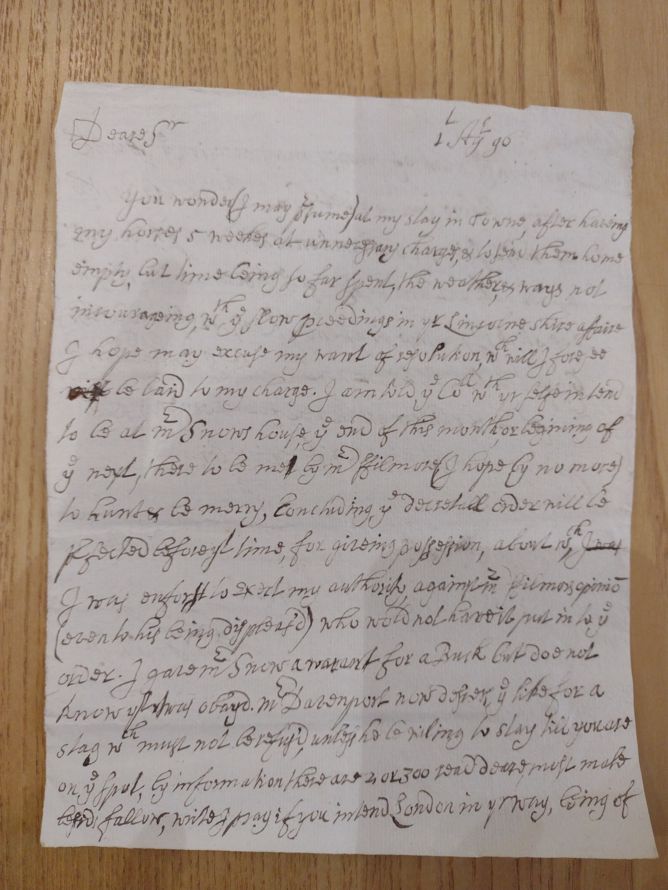 Deare Sr
1t Agt 90
You wonder (I may p'sume) at my stay in Towne, after having
my horses 5 weekes at unnecessary charge, & to send them home
empty, but time being so far spent, the weather, & ways not
incourageing, wth ye slow proceedings in yr Lincolneshire affaire
I hope may excuse my want of resolution, wch will I foresee
be laid to my charge. I am told ye Coll wth yr selfe intend
to be at Mr Snows house, ye end of this month, or begining of
ye next, there to be met by Mr Filmore (I hope by no more)
to hunt & be merry, concluding ye decretall order will be
p'fected before yt time, for giveing possession, about wch I was
I was enforst to exert my authority against Mr Filmors opinio
(even to his being displeas'd) who would not have it put into ye
order. I gave Mr Snow a warant for a Buck but doe not
know yt it was obayd. Mr Davenport now desires ye like for a
stag wch must not be refus'd, unles he be wiling to stay till you are
on ye spot, by information there are 2 or 300 read deare most male
fallow, write I pray if you intend London in yr way, being of